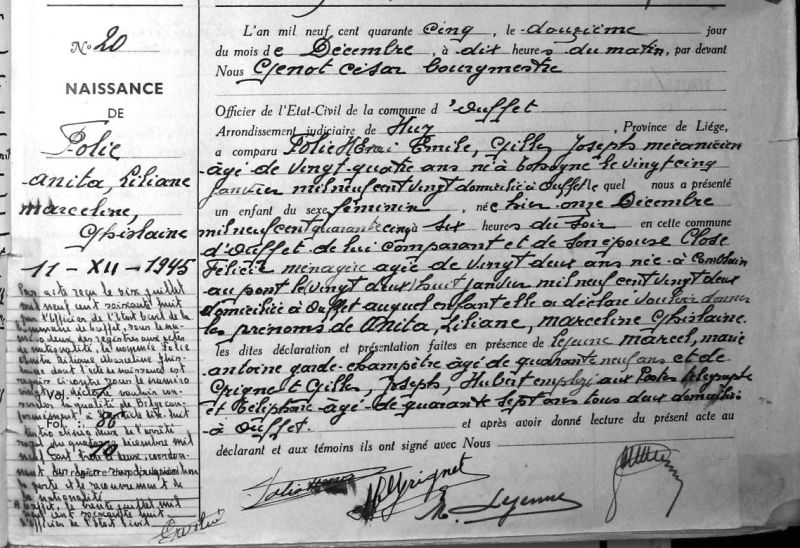 N° 20
NAISSANCE
DE
Folie
Anita, Liliane
Marceline,
Ghislaine
11 - XII - 1945
Par acte reçu le six juillet
mil neuf cent soixante huit
par l'Officier de l'État Civil de la
commune de Ouffet, sous le nu-
méro deux des registres aux actes
de nationalité, la nommée Folie
Anita Liliane Marceline Ghis-
laine dont l'acte de naissance est
repris ci-contre sous le numéro
vingt, déclare vouloir con-
server la qualité de Belge con-
formément à l'article dix-huit
Vol.
Fol. : 86
C. 10
du quatorze décembre mil
neuf cent trente deux, coordon-
la perte et le recouvrement de
la nationalité.
A Ouffet, le trente juillet mil
neuf cent soixante huit
L'Officier de l'État Civil
L'an mil neuf cent quarante cinq, le douzième jour
du mois de Décembre, à dix heures du matin, par devant
Nous Genot César bourgmestre
Officier de l'Etat-Civil de la commune d'Ouffet
Arrondissement judiciaire de Huy, Province de Liége,
a comparu Folie Henri Emile, Gilles, Joseph mécanicien
âgé de vingt quatre ans né à Borsogne le vingt cinq
janvier mil neuf cent vingt domicilié à Ouffet le quel nous a présenté
un enfant du sexe féminin, née hier onze Décembre
mil neuf cent quarante cinq à six heures du soir en cette commune
d'Ouffet de lui comparant et de son épouse Close
Félicie ménagère agée de vingt deux ans née à Comblain
au pont le vingt deux/huit janvier mil neuf cent vingt deux
domiciliée à Ouffet auquel enfant elle a déclaré vouloir donner
les prénoms de Anita, Liliane, Marceline Ghislaine
les dites déclaration et présentation faites en présence de Lejeune Marcel, Marie
Antoine garde-champêtre âgé de quarante neuf ans et de
Grignet Gilles, Joseph, Hubert employé aux Postes télégraphe
et Téléphone âgé de quarante sept ans tous deux domiciliés
à Ouffet. et après avoir donné lecture du présent acte au
déclarant et aux témoins ils ont signé avec Nous
Folie Henri
Grignet
M. Lejeune